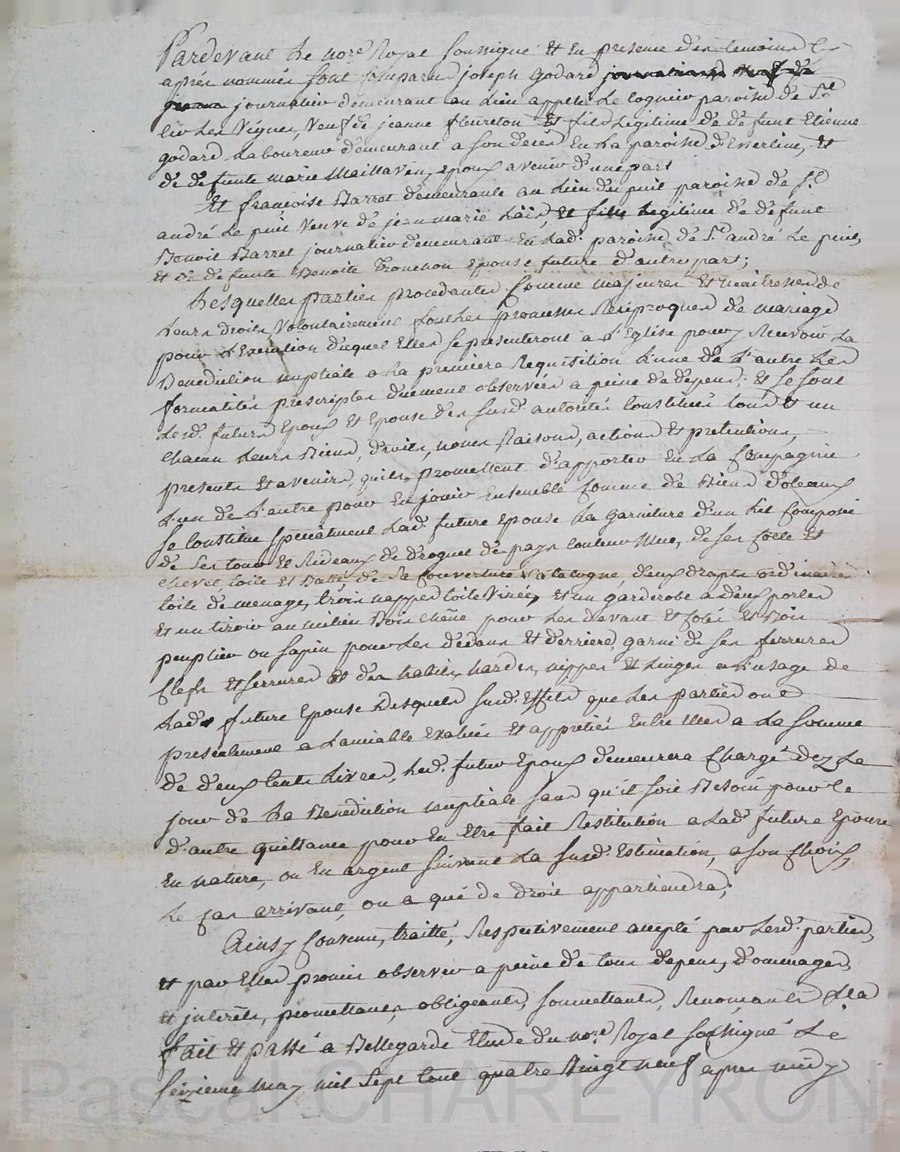 Pardevant Le nore Royal soussigné Et En presence des temoins Cy
aprés nommés sont comparu joseph godard journalier
journalier demeurant au Lieu appelé Le cognier paroisse de St
Cir Les Vignes, Veuf de jeanne fleureton Et fils Legitime de defunt Etienne
godard Laboureur demeurant a son decés En La paroisse d'Everline, Et
de defunte marie Maillavin, epoux avenir d'une part
Et françoise Barrot demeurante au Lieu du puit paroisse de St
andré Le puit Veuve de jean marie Laïs, Et fille Legitime de defunt
Benoit Barrot journalier demeurant En Lad. paroisse de St andré Le puit,
Et de defunte Benoite Tronchon Epouse future d'autre part;
Lesquelles parties procedantes comme majeures Et maitresses de
Leurs droits Volontairement font Les promesses Réciproques de mariage
pour L'Execution duquel Elles se presenteront a L'Eglise pour y Recevoir La
Benediction nuptiale a La premiere Requisition L'une de L'autre Les
formalités prescriptes duement observées a peine de depens; Et se sont
Lesd. futurs Epoux Et Epouse des susd. autorités Constitués tous Et un
chacun Leurs Biens, droits, noms Raisons, actions Et pretentions,
presents Et avenirs, quils promettent d'apporter En La Compagnie
L'un de L'autre pour En jouir Ensemble comme de Biens dotaux
se Constitue specialment Lad. future epouse La garniture d'un Lit Composé
de ses tours Et Rideaux de droguet de pays couleur bleue, de ses Coëte Et
chevet toile Et Basse de Sa Couverture Catalogne, deux draps ordinaire
toile de menage, trois nappes toile Virée, Et un garderobe a deux portes
Et un tiroir au milieu Bois chêne pour Les devant Et cotés Et Bois
peuplier ou sapin pour Les dedans Et derriere, garni de ses ferrures
Clefs Et serrures Et des habits, hardes, nippes Et Linges a L'usage de
Lad. future Epouse Lesquels susd. Effets que Les parties ont
presentement a L'amiable Evalués Et appretiés Entre Elles a La somme
de deux Cents Livres, Led. futur Epoux demeurera Chargé dez Le
jour de La Benediction nuptiale sans qu'il soit Besoin pour ce
d'autre quittance pour En Etre fait Restitution a Lad. future Epouse
En nature, ou En argent suivant La susd. Estimation, a son Choix,
Le Cas arrivant, ou a qui de droit appartiendra;
Ainsy Convenu, traitté, Respectivement accepté par Lesd. parties,
Et par Elles promis observer a peine de tous depens, dommages,
Et interêts, promettants, obligeants, soumettants, Renonçants &la
fait Et passé a Bellegarde Etude du nore Royal soussigné Le
seizieme may mil sept Cent quatre Vingt neuf apres midy
Pascal CHAREYRON